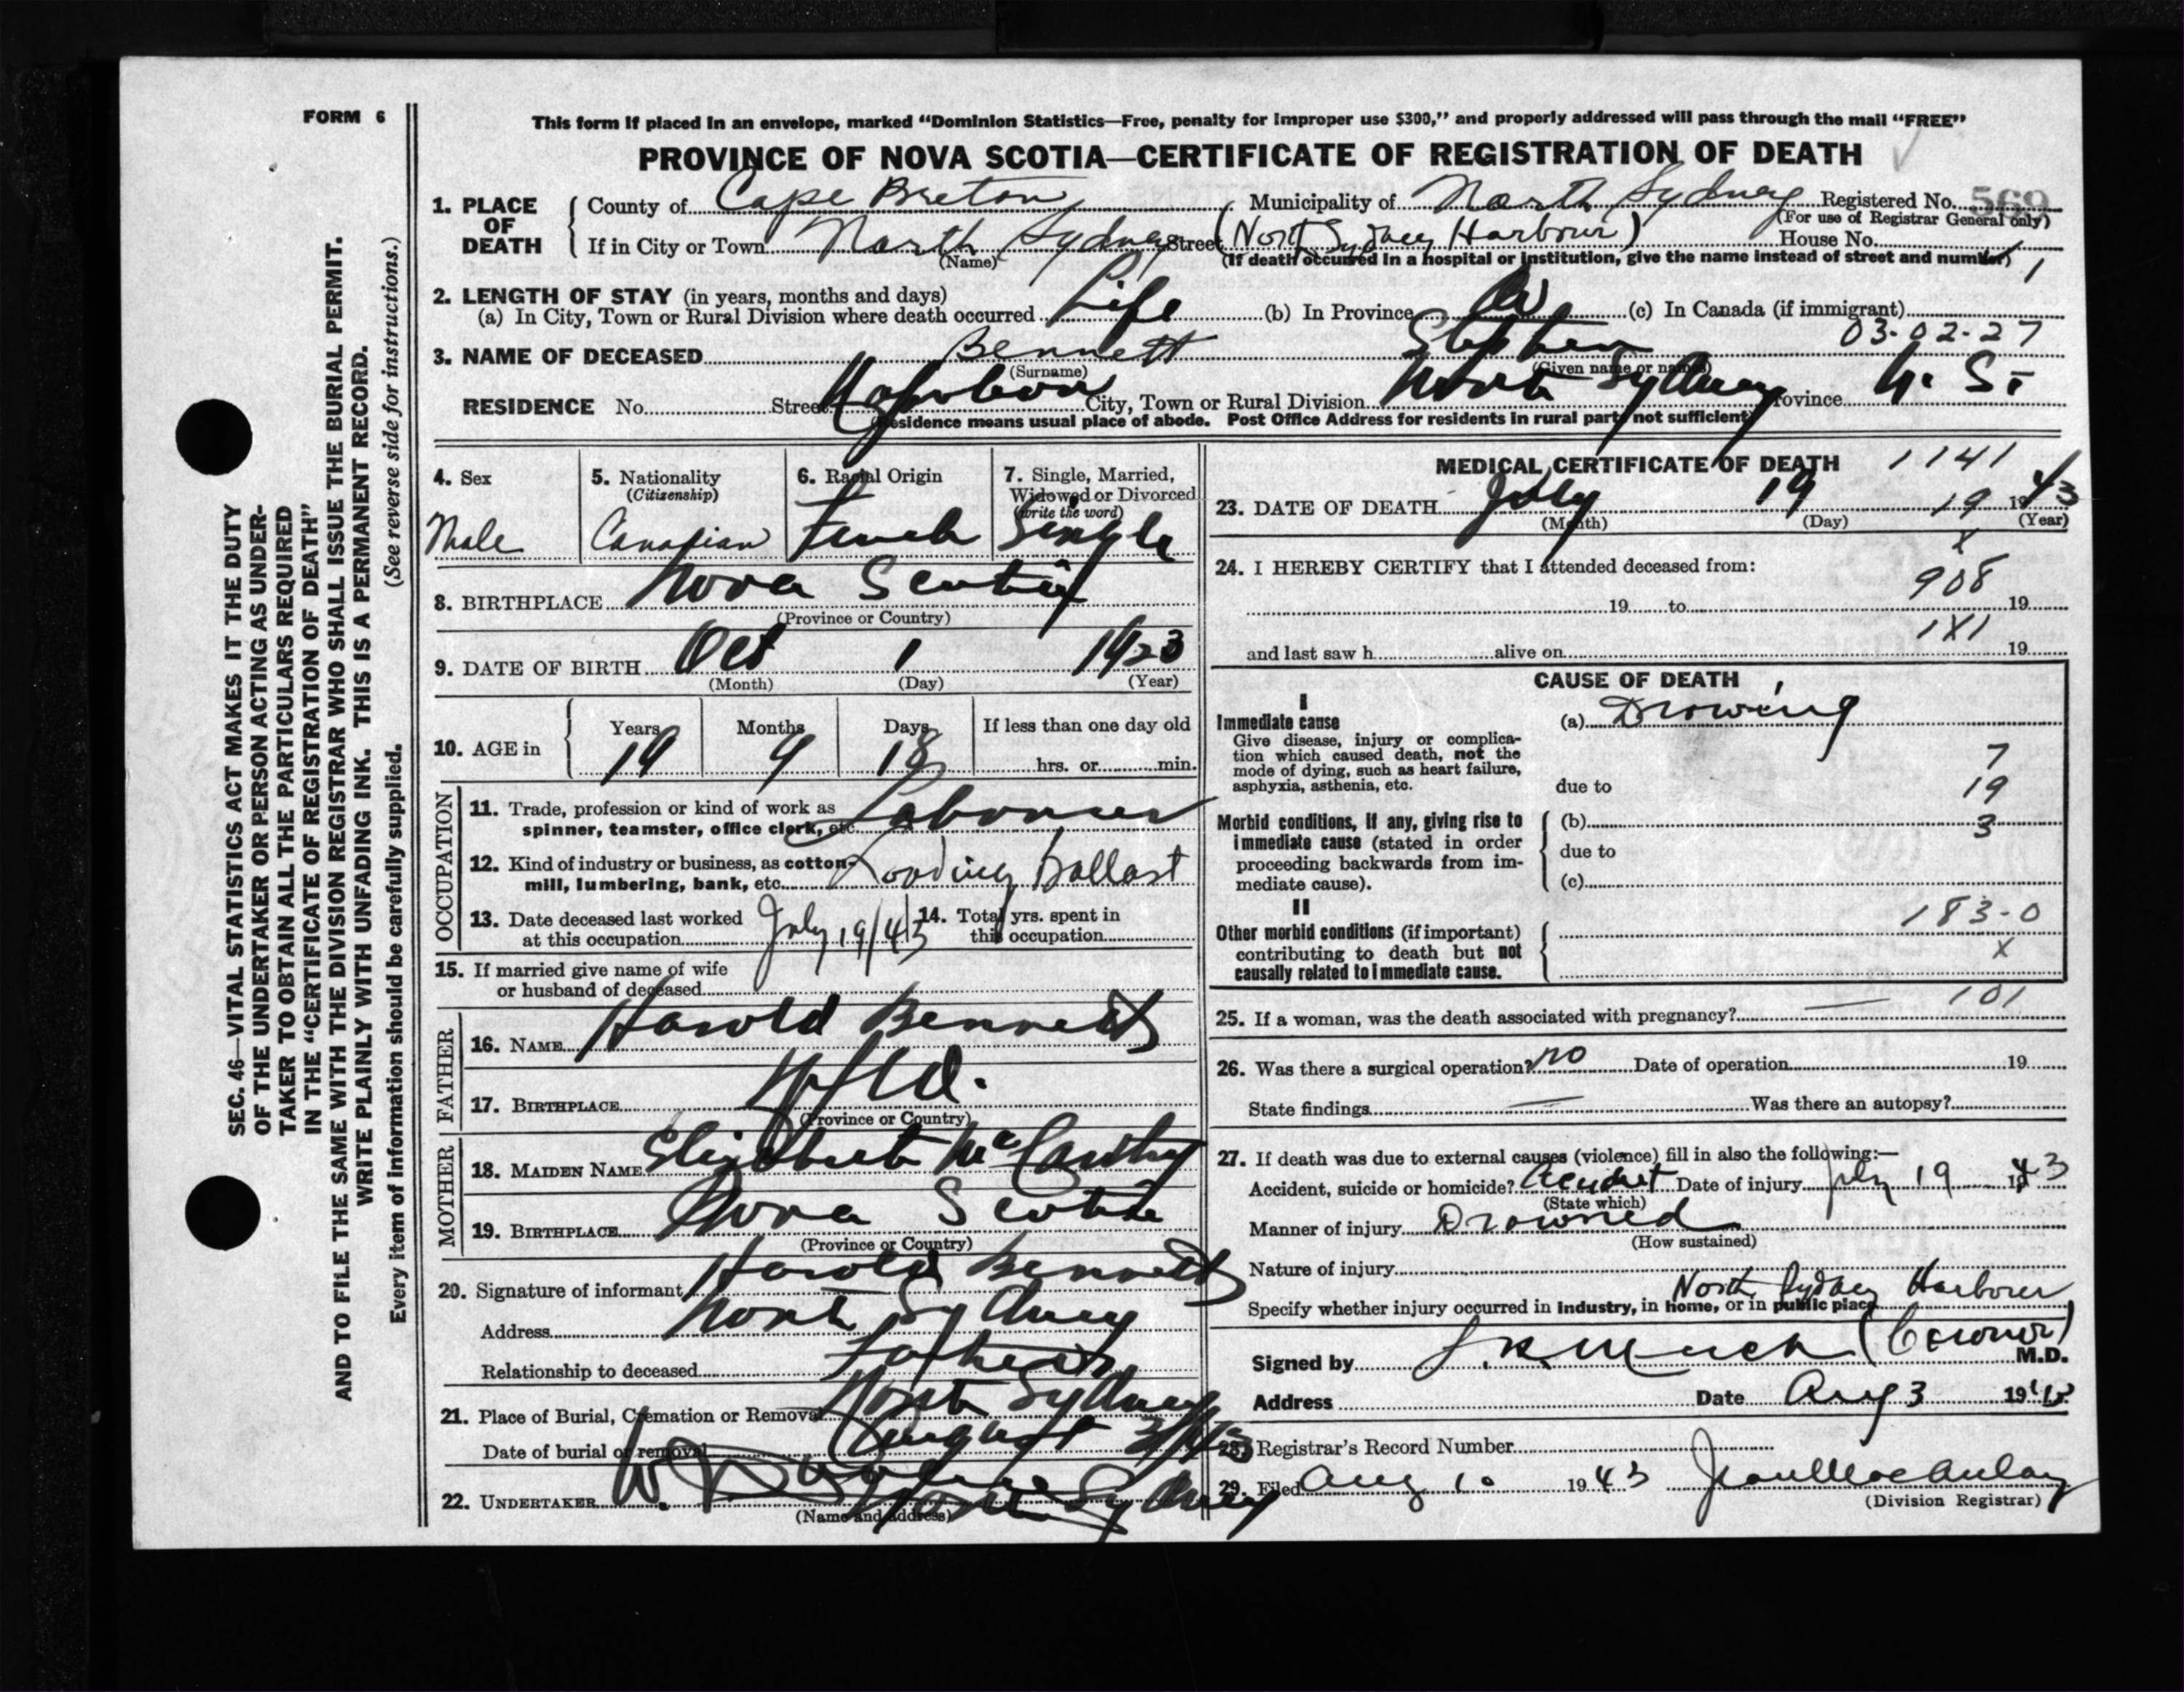 FORM 6
This form if placed in an envelope, marked “Dominion Statistics—Free, penalty for improper use $300,” and properly addressed will pass through the mail “FREE”
PROVINCE OF NOVA SCOTIA—CERTIFICATE OF REGISTRATION OF DEATH
1. PLACE OF DEATH County of Cape Breton Municipality of North Sydney Registered No. 569
(For use of Registrar General only)
If in City or Town North Sydney Street (North Sydney Harbour) House No.
(Name) (If death occurred in a hospital or institution, give the name instead of street and number) 1
2. LENGTH OF STAY (in years, months and days)
(a) In City, Town or Rural Division where death occurred Life (b) In Province (c) In Canada (if immigrant)
03-02-27
3. NAME OF DECEASED Bennett Stephen
(Surname) (Given name or names)
RESIDENCE No. Street Napoleon City, Town or Rural Division North Sydney Province N. S.
(Residence means usual place of abode. Post Office Address for residents in rural parts not sufficient)
4. Sex Male
5. Nationality (Citizenship) Canadian
6. Racial Origin French
7. Single, Married, Widowed or Divorced (write the word) Single
8. BIRTHPLACE Nova Scotia
(Province or Country)
9. DATE OF BIRTH Oct 1 1923
(Month) (Day) (Year)
10. AGE in Years 19 Months 9 Days 18 If less than one day old hrs. or min.
OCCUPATION
11. Trade, profession or kind of work as spinner, teamster, office clerk, etc. Labourer
12. Kind of industry or business, as cotton-mill, lumbering, bank, etc. Loading Ballast
13. Date deceased last worked at this occupation July 19/43
14. Total yrs. spent in this occupation
15. If married give name of wife or husband of deceased
FATHER
16. NAME Harold Bennett
17. BIRTHPLACE Nfld.
(Province or Country)
MOTHER
18. MAIDEN NAME Elizabeth McCarthy
19. BIRTHPLACE Nova Scotia
(Province or Country)
20. Signature of informant Harold Bennett
Address North Sydney
Relationship to deceased Father
21. Place of Burial, Cremation or Removal North Sydney
Date of burial or removal August 3/43
22. UNDERTAKER W. North Sydney
(Name and address)
MEDICAL CERTIFICATE OF DEATH 1141
23. DATE OF DEATH July 19 1943
(Month) (Day) (Year)
19
x
24. I HEREBY CERTIFY that I attended deceased from:
908
19 to 19
1X1
and last saw h alive on 19
CAUSE OF DEATH
I
Immediate cause (a) Drowing
Give disease, injury or complication which caused death, not the mode of dying, such as heart failure, asphyxia, asthenia, etc.
7
due to 19
Morbid conditions, if any, giving rise to immediate cause (stated in order proceeding backwards from immediate cause).
(b) 3
due to
(c)
II
183-0
Other morbid conditions (if important) contributing to death but not causally related to immediate cause.
X
101
25. If a woman, was the death associated with pregnancy? —
26. Was there a surgical operation? no Date of operation 19
State findings — Was there an autopsy?
27. If death was due to external causes (violence) fill in also the following:—
Accident, suicide or homicide? Accident Date of injury July 19 1943
(State which)
Manner of injury Drowned
(How sustained)
Nature of injury
Specify whether injury occurred in industry, in home, or in public place North Sydney Harbour
Signed by (Coroner) M.D.
Address Date Aug 3 1943
28. Registrar's Record Number
29. Filed Aug 10 1943 Jean MacAulay
(Division Registrar)
SEC. 46—VITAL STATISTICS ACT MAKES IT THE DUTY
OF THE UNDERTAKER OR PERSON ACTING AS UNDER-
TAKER TO OBTAIN ALL THE PARTICULARS REQUIRED
IN THE “CERTIFICATE OF REGISTRATION OF DEATH”
AND TO FILE THE SAME WITH THE DIVISION REGISTRAR WHO SHALL ISSUE THE BURIAL PERMIT.
WRITE PLAINLY WITH UNFADING INK. THIS IS A PERMANENT RECORD.
(See reverse side for instructions.)
Every item of information should be carefully supplied.